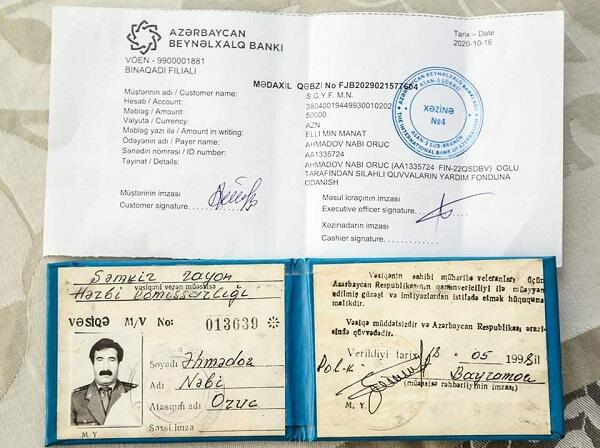 AZƏRBAYCAN
BEYNƏLXALQ BANKI
Tarix – Date
2020-10-16
VÖEN - 9900001881
BINAQADI FILIALI
MƏDAXİL QƏBZİ No FJB2029021577604
Müştərinin adı / Customer name: S.G.Y.F. M.N.
Hesab / Account: 38040019449930010202
Məbləğ / Amount: 50000
Valyuta / Currency: AZN
Məbləğ yazı ilə / Amount in writing: ELLI MIN MANAT
Ödəyənin adı / Payer name: AHMADOV NABI ORUC
Sənədin nömrəsi / ID number: AA1335724
Təyinat / Details: AHMADOV NABI ORUC (AA1335724 FIN-22QSDBV) OGLU
TARAFINDAN SILAHLI QUVVALARIN YARDIM FONDUNA
ODANISH
XƏZİNƏ
№4
Müştərinin imzası
Customer signature
Məsul icraçının imzası
Executive officer signature
Xəzinadarın imzası
Cashier signature
Şəmkir rayon
vəsiqəni verən müəssisə
Hərbi Komissarlığı
VƏSİQƏ M/V No: 013639 *
Soyadı Əhmədov
Adı Nəbi
Atasının adı Oruc
Şəxsi imza
M. Y.
Vəsiqənin sahibi müharibə veteranları üçün
Azərbaycan Respublikasının qanunvericiliyi ilə müəyyən
edilmiş güzəşt və imtiyazlardan istifadə etmək hüququna
malikdir.
Vəsiqə müddətsizdir və Azərbaycan Respublikası ərazi-
sində qüvvədədir.
Verildiyi tarix 05 1998 il
Pol-k Bayramov
(müəssisə rəhbərliyinin imzası)
M. Y.